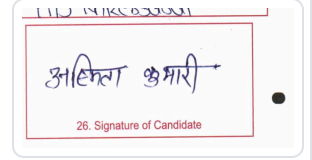 अस्मिता कुमारी
26. Signature of Candidate